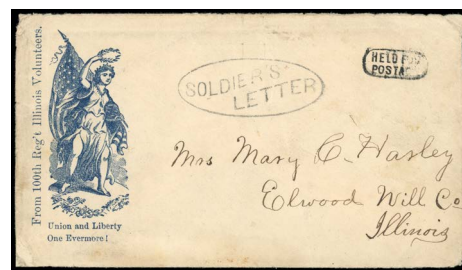 From 100th Reg't Illinois Volunteers.
Union and Liberty
One Evermore!
SOLDIER'S
LETTER
HELD FOR
POSTAGE
Mrs Mary C. Harley
Elwood Will Co
Illinois